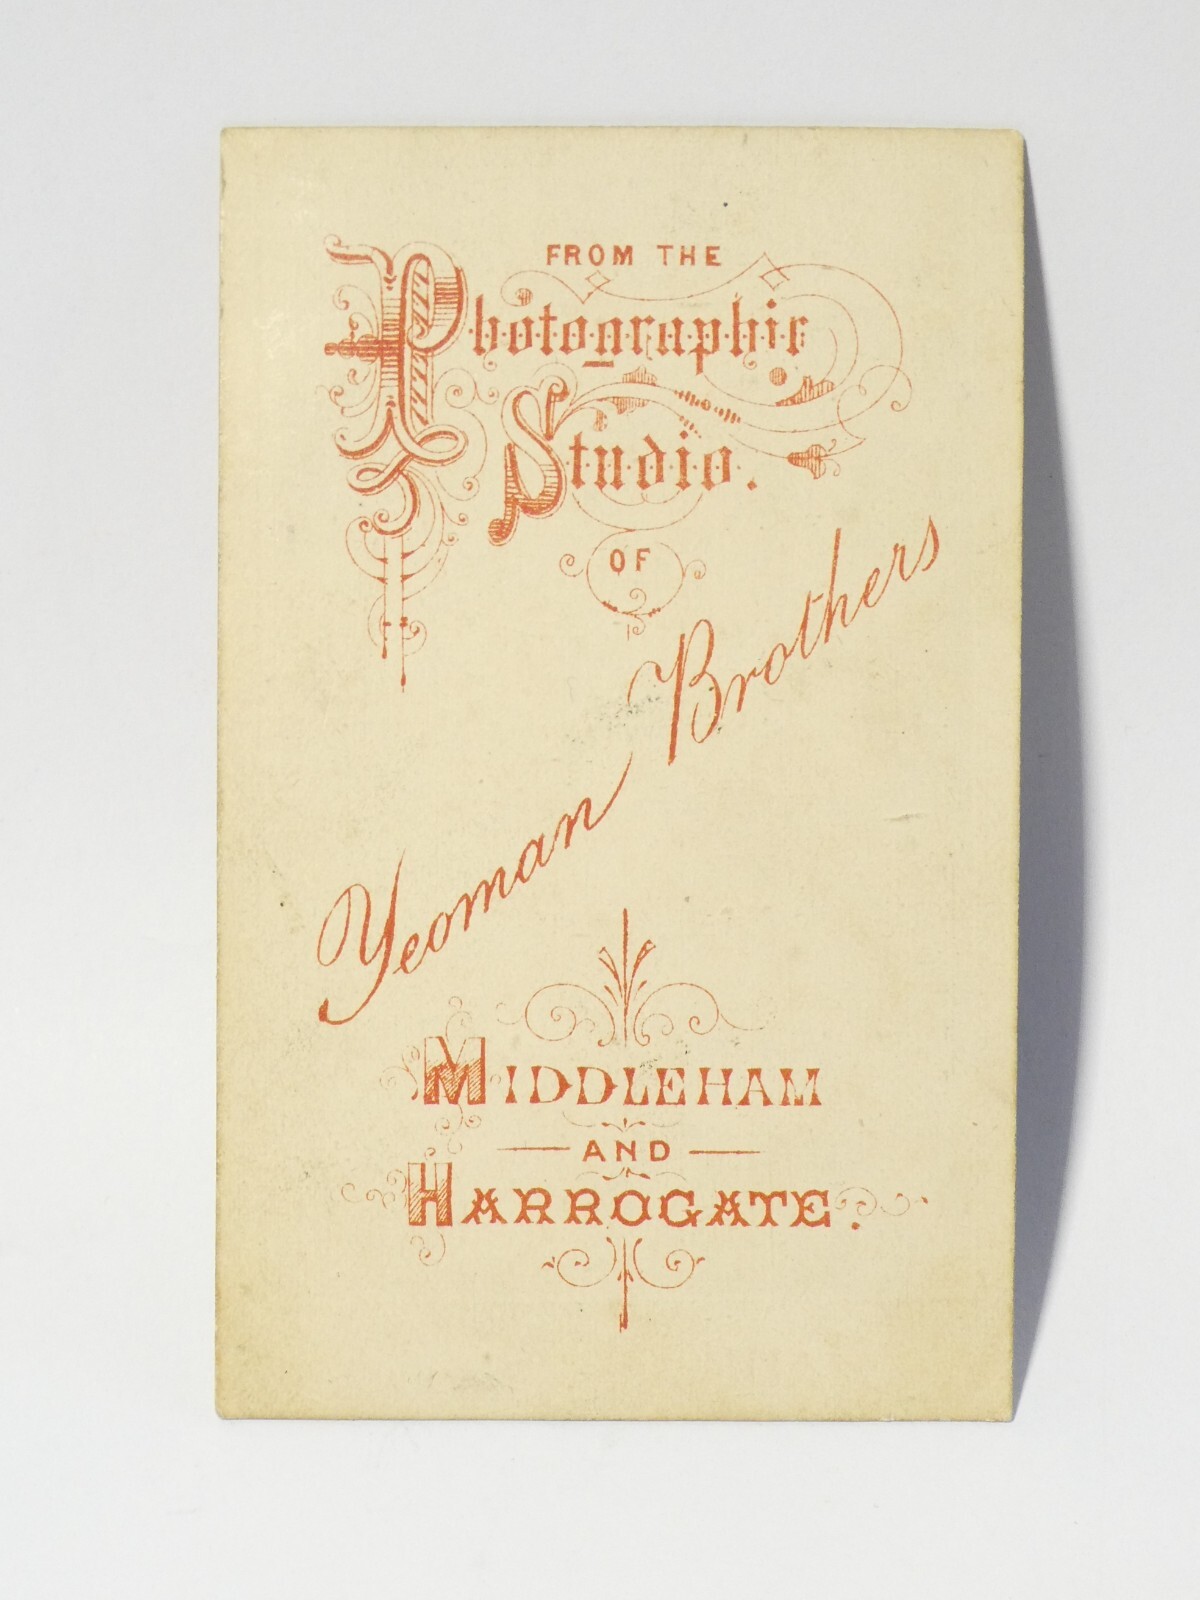 FROM THE
Photographic
Studio.
OF
Yeoman Brothers
MIDDLEHAM
AND
HARROGATE.